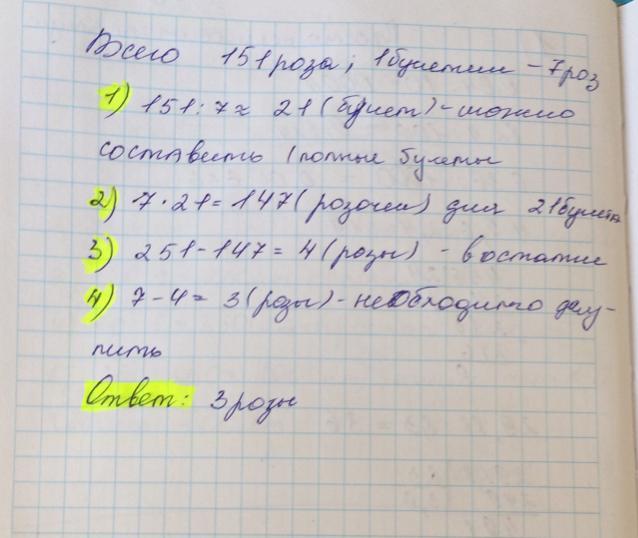 Всего 151 роза; 1 букетик - 7 роз
1) 151 : 7 ≈ 21 (букет) - можно
составить (полные букеты
2) 7 · 21 = 147 (розочек) для 21 букета
3) 251 - 147 = 4 (розы) - в остатке
4) 7 - 4 = 3 (розы) - необходимо доку-
пить
Ответ: 3 розы